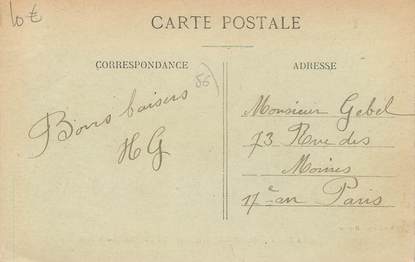 10€
CARTE POSTALE
CORRESPONDANCE
ADRESSE
56
Bons baisers
HG
Monsieur Gebel
73 Rue des
Moines
17e arr Paris